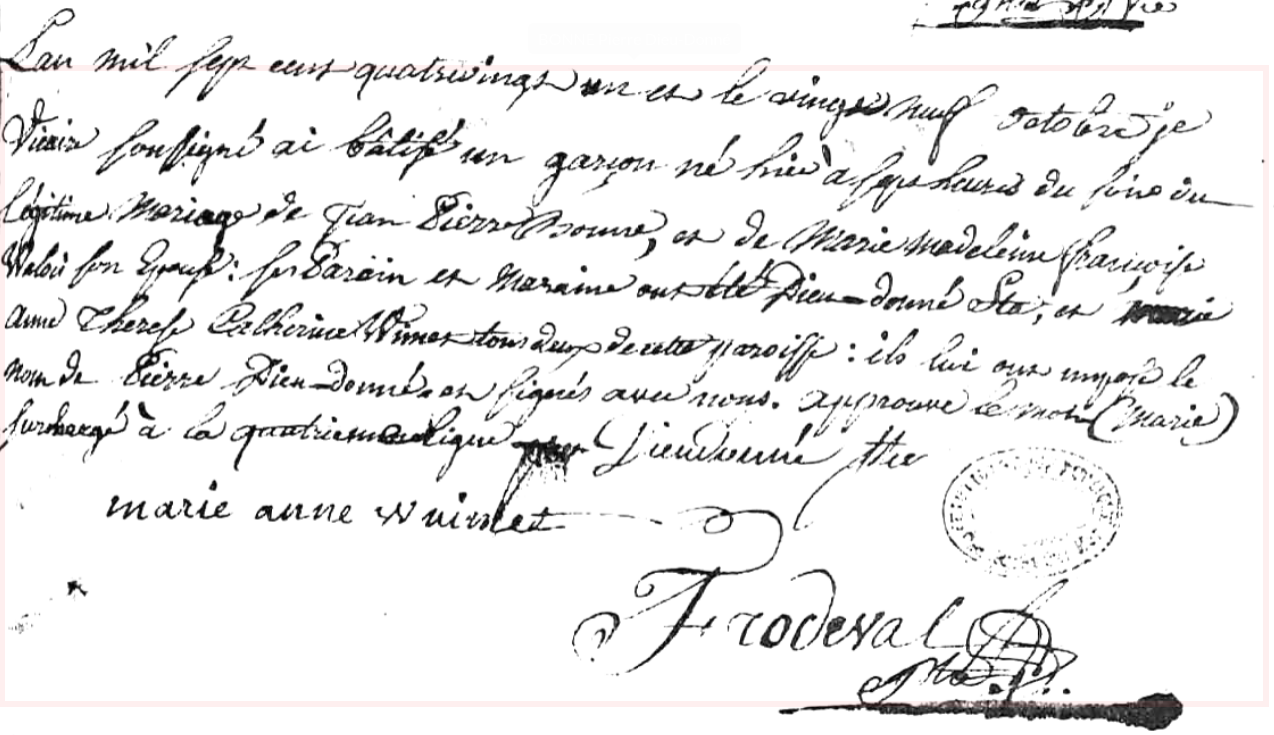 L'an mil sept cent quatrevingt un et le vingt neuf octobre je
Vicaire soussigné ai batisé un garçon né hier à sept heures du soire du
légitime Mariage de Jean Pierre Bonne, et de Marie Madeleine françoise
son Epouse: ses Parain et Maraine ont été Dieu-donné et Marie
Anne Therese Catherine Wimet tous deux de cette paroisse: ils lui ont imposé le
nom de Pierre Dieu-donné. et signés avec nous. approuve le mot (Marie)
surchargé à la quatrieme ligne Dieudonné
marie anne wuimet
Frodeval